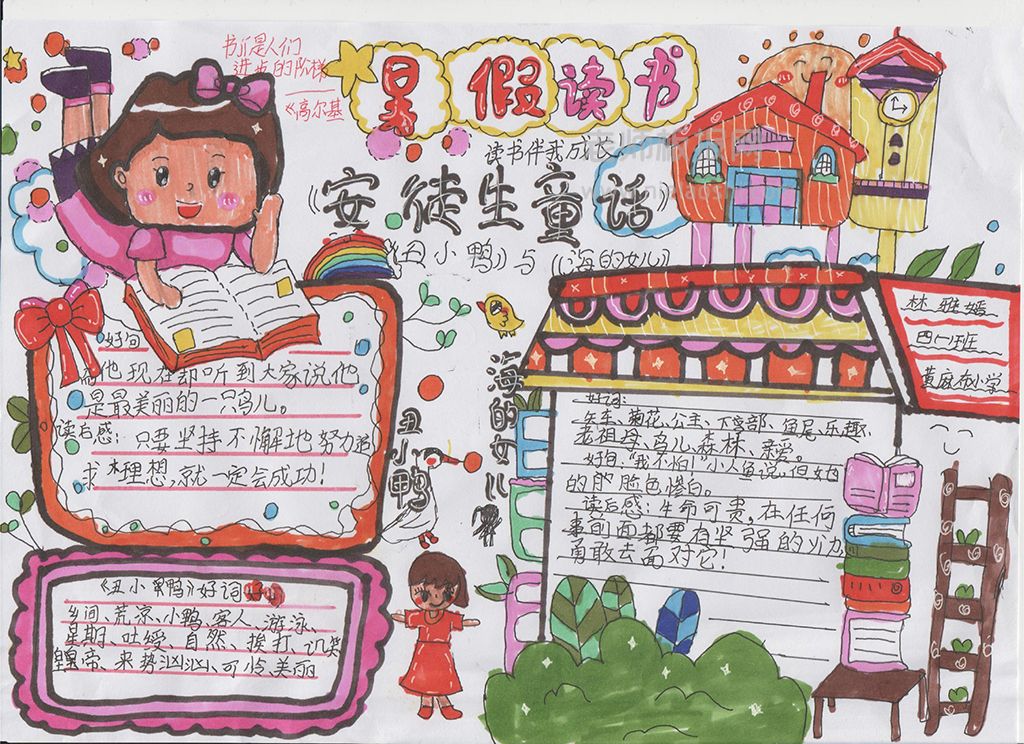 书籍是人们
进步的阶梯
——《高尔基
暑假读书
读书伴我成长
《安徒生童话》
《丑小鸭》与《海的女儿》
林雅嫣
四(1)班
黄麻布小学
好句
他现在却听到大家说他
是最美丽的一只鸟儿。
读后感：只要坚持不懈地努力追
求理想，就一定会成功！
丑小鸭
海的女儿
《丑小鸭》好词
乡间、荒凉、小鸭、客人、游泳、
星期、吐绶、自然、挨打、讥笑
皇帝、来势汹汹、可怜、美丽
好词：
矢车、菊花、公主、下部、鱼尾、乐趣、
老祖母、鸟儿、森林、亲爱。
好句："我不怕！"小人鱼说，但她
的脸色惨白。
读后感：生命可贵，在任何
事前面都要有坚强的
勇敢去面对它！